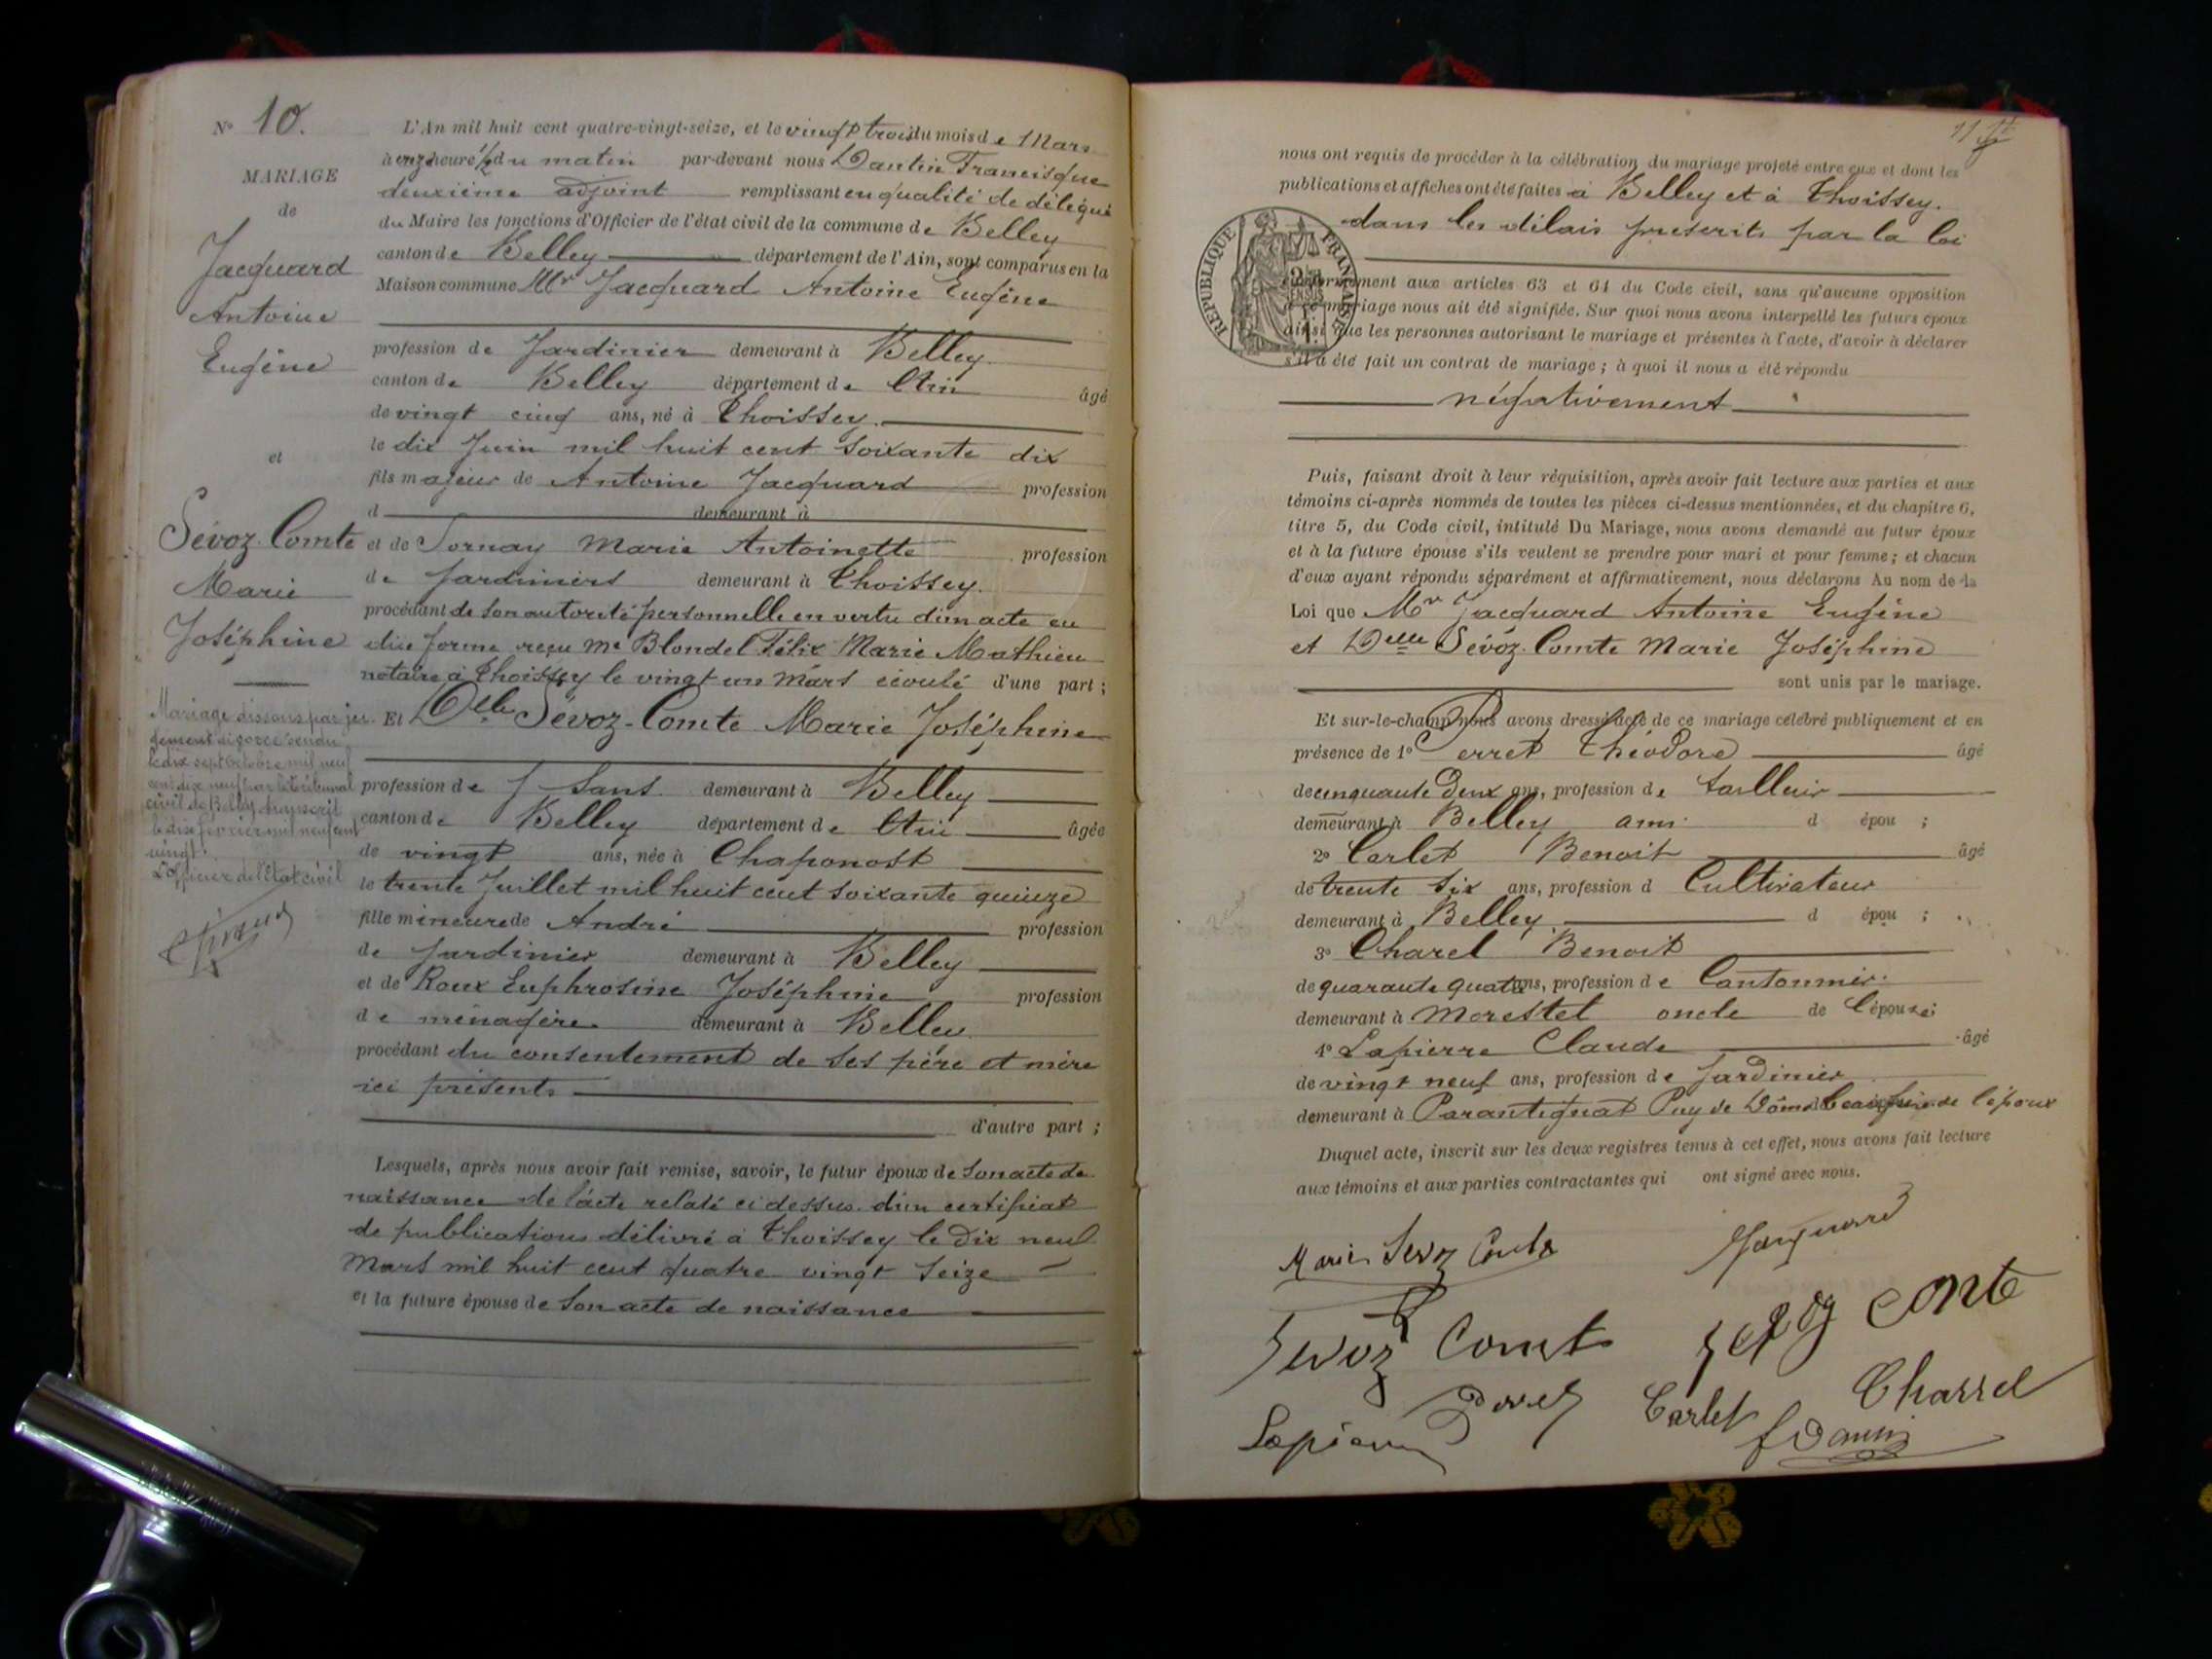 N° 10.
MARIAGE
de
Jacquard
Antoine
Eugène
et
Sévoz-Comte
Marie
Joséphine
Mariage dissous par ju-
gement divorce rendu
le dix sept octobre mil neuf
cent dix neuf par le tribunal
civil de Belley transcrit
le dix février mil neuf cent
vingt.
L'Officier de l'état civil
L'An mil huit cent quatre-vingt-seize, et le vingt trois du mois de Mars
à onze heure 1/2 du matin par-devant nous Dantin Francisque
deuxième adjoint remplissant en qualité de délégué
du Maire les fonctions d'Officier de l'état civil de la commune de Belley
canton de Belley département de l'Ain, sont comparus en la
Maison commune Mr Jacquard Antoine Eugène
profession de Jardinier demeurant à Belley
canton de Belley département de Ain âgé
de vingt cinq ans, né à Thoissey.
le dix Juin mil huit cent soixante dix
fils majeur de Antoine Jacquard profession
d demeurant à
et de Sornay Marie Antoinette profession
de Jardiniers demeurant à Thoissey.
procédant de son autorité personnelle en vertu d'un acte en
due forme reçu Me Blondel Félix Marie Mathieu
notaire à Thoissey le vingt un Mars écoulé d'une part ;
Et Delle Sévoz-Comte Marie Joséphine
profession de Sans demeurant à Belley
canton de Belley département de Ain âgée
de vingt ans, née à Chaponost
le trente Juillet mil huit cent soixante quinze
fille mineure de André profession
de Jardinier demeurant à Belley
et de Roux Euphrosine Joséphine profession
de ménagère demeurant à Belley
procédant du consentement de ses père et mère
ici présents
d'autre part ;
Lesquels, après nous avoir fait remise, savoir, le futur époux de son acte de
naissance de l'acte relaté ci dessus d'un certificat
de publications délivré à Thoissey le dix neuf
Mars mil huit cent quatre vingt seize
et la future épouse de son acte de naissance
11
nous ont requis de procéder à la célébration du mariage projeté entre eux et dont les
publications et affiches ont été faites à Belley et à Thoissey.
dans les délais prescrits par la loi
RÉPUBLIQUE FRANÇAISE
conformément aux articles 63 et 64 du Code civil, sans qu'aucune opposition
à ce mariage nous ait été signifiée. Sur quoi nous avons interpellé les futurs époux
ainsi que les personnes autorisant le mariage et présentes à l'acte, d'avoir à déclarer
s'il a été fait un contrat de mariage ; à quoi il nous a été répondu
négativement
Puis, faisant droit à leur réquisition, après avoir fait lecture aux parties et aux
témoins ci-après nommés de toutes les pièces ci-dessus mentionnées, et du chapitre 6,
titre 5, du Code civil, intitulé Du Mariage, nous avons demandé au futur époux
et à la future épouse s'ils veulent se prendre pour mari et pour femme ; et chacun
d'eux ayant répondu séparément et affirmativement, nous déclarons Au nom de la
Loi que Mr Jacquard Antoine Eugène
et Delle Sévoz-Comte Marie Joséphine
sont unis par le mariage.
Et sur-le-champ nous avons dressé acte de ce mariage célébré publiquement et en
présence de 1° Perret Théodore âgé
de cinquante deux ans, profession de tailleur
demeurant à Belley ami d épou ;
2° Carlet Benoit âgé
de trente six ans, profession d Cultivateur
demeurant à Belley d épou ;
3° Charel Benoit
de quarante quatre ans, profession de Cantonnier
demeurant à Morestel oncle de l'épouse
4° Lapierre Claude âgé
de vingt neuf ans, profession de Jardinier
demeurant à Parantignat Puy de Dôme beau frère de l'époux
Duquel acte, inscrit sur les deux registres tenus à cet effet, nous avons fait lecture
aux témoins et aux parties contractantes qui ont signé avec nous.
Marie Sevoz Comte Jacquard
Sevoz Comte Sevoz Conte
Lapierre Perret Carlet Charrel
f Dantin